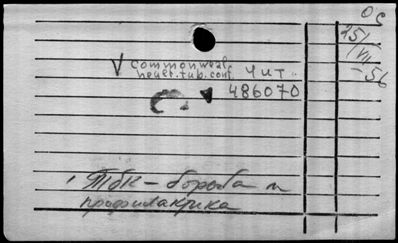 ОС
25/
VII
-56
V commonweal.
health.tub.conf. Чит.
486070
1 Тбк - борьба и
профилактика